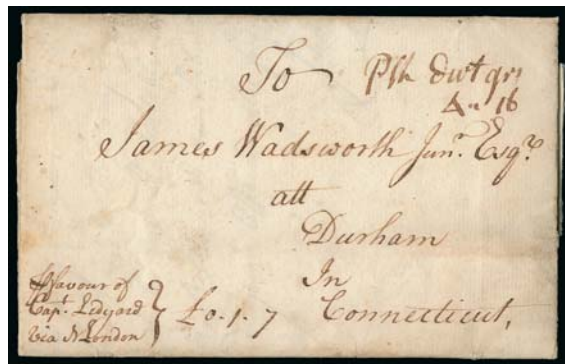 To
Psh dwt grs
4 " 16
James Wadsworth Junr. Esqr.
att
Durham
In
Connecticut,
favour of
Capt. Ledyard
via N London
£0. 1. 7